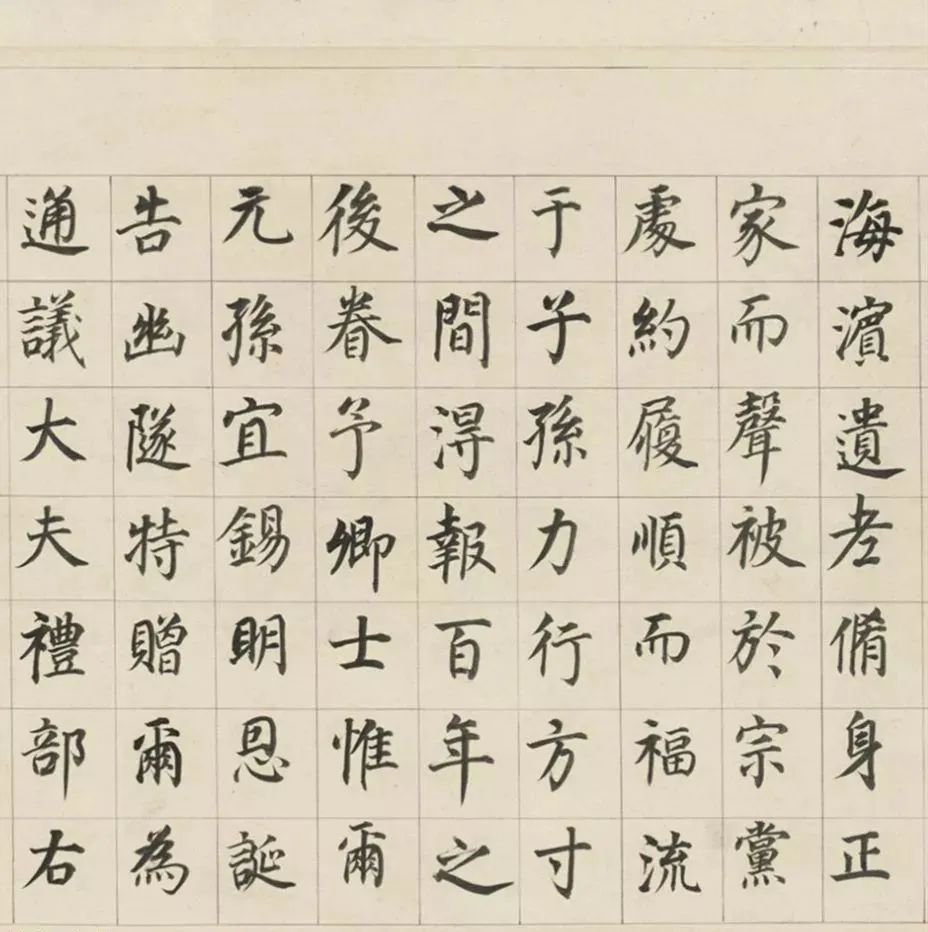 海濵遺老脩身正
家而聲被於宗黨
處約履順而福流
于子孫力行方寸
之間淂報百年之
後眷予卿士惟爾
元孫宜錫明恩誕
告幽隧特贈爾為
通議大夫禮部右